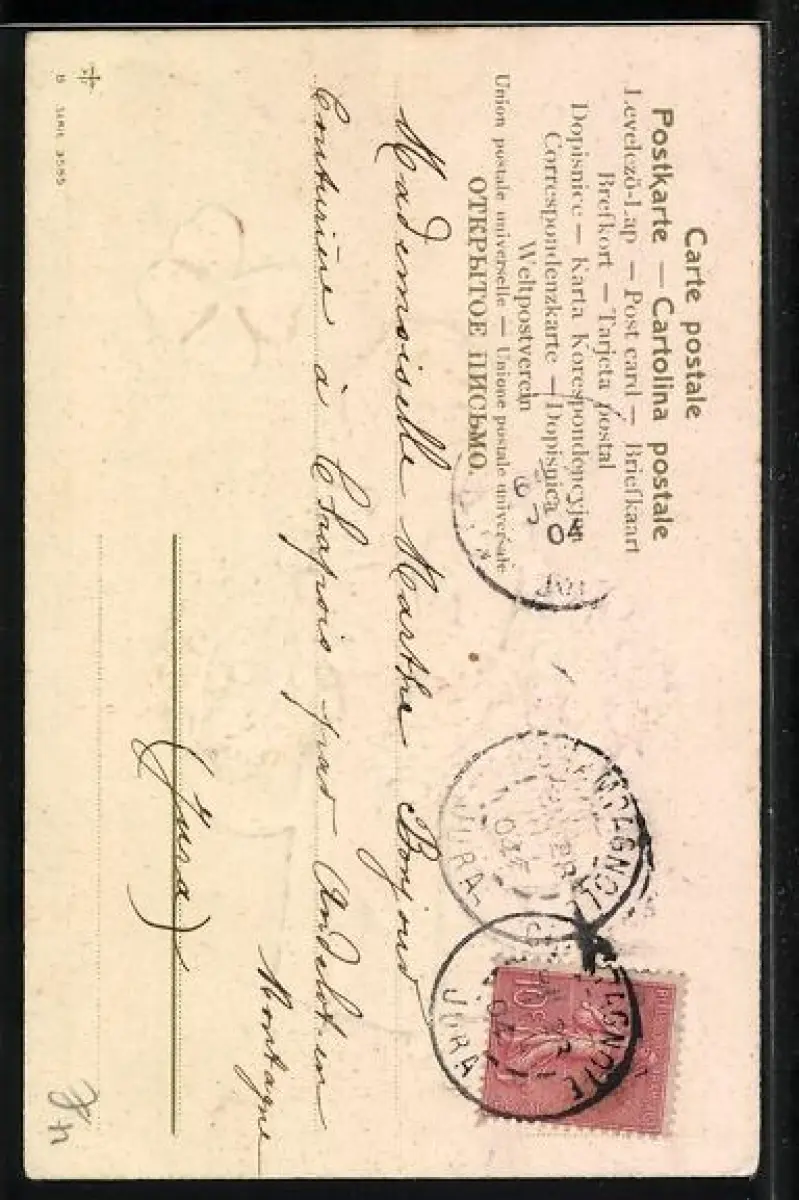 Carte postale
Postkarte — Cartolina postale
Levelező-Lap — Post card — Briefkaart
Brefkort — Tarjeta postal
Dopisnice — Karta Korespondencyjna
Correspondenzkarte — Dopisnica
Weltpostverein
Union postale universelle — Unione postale universale
ОТКРЫТОЕ ПИСЬМО.
Mademoiselle Marthe Bonjour
Couturière à Chapois par Andelot-en
Montagne
(Jura)
CHAMPAGNOLE
JURA
04
10c
JURA
04
04
B SERIE 3585